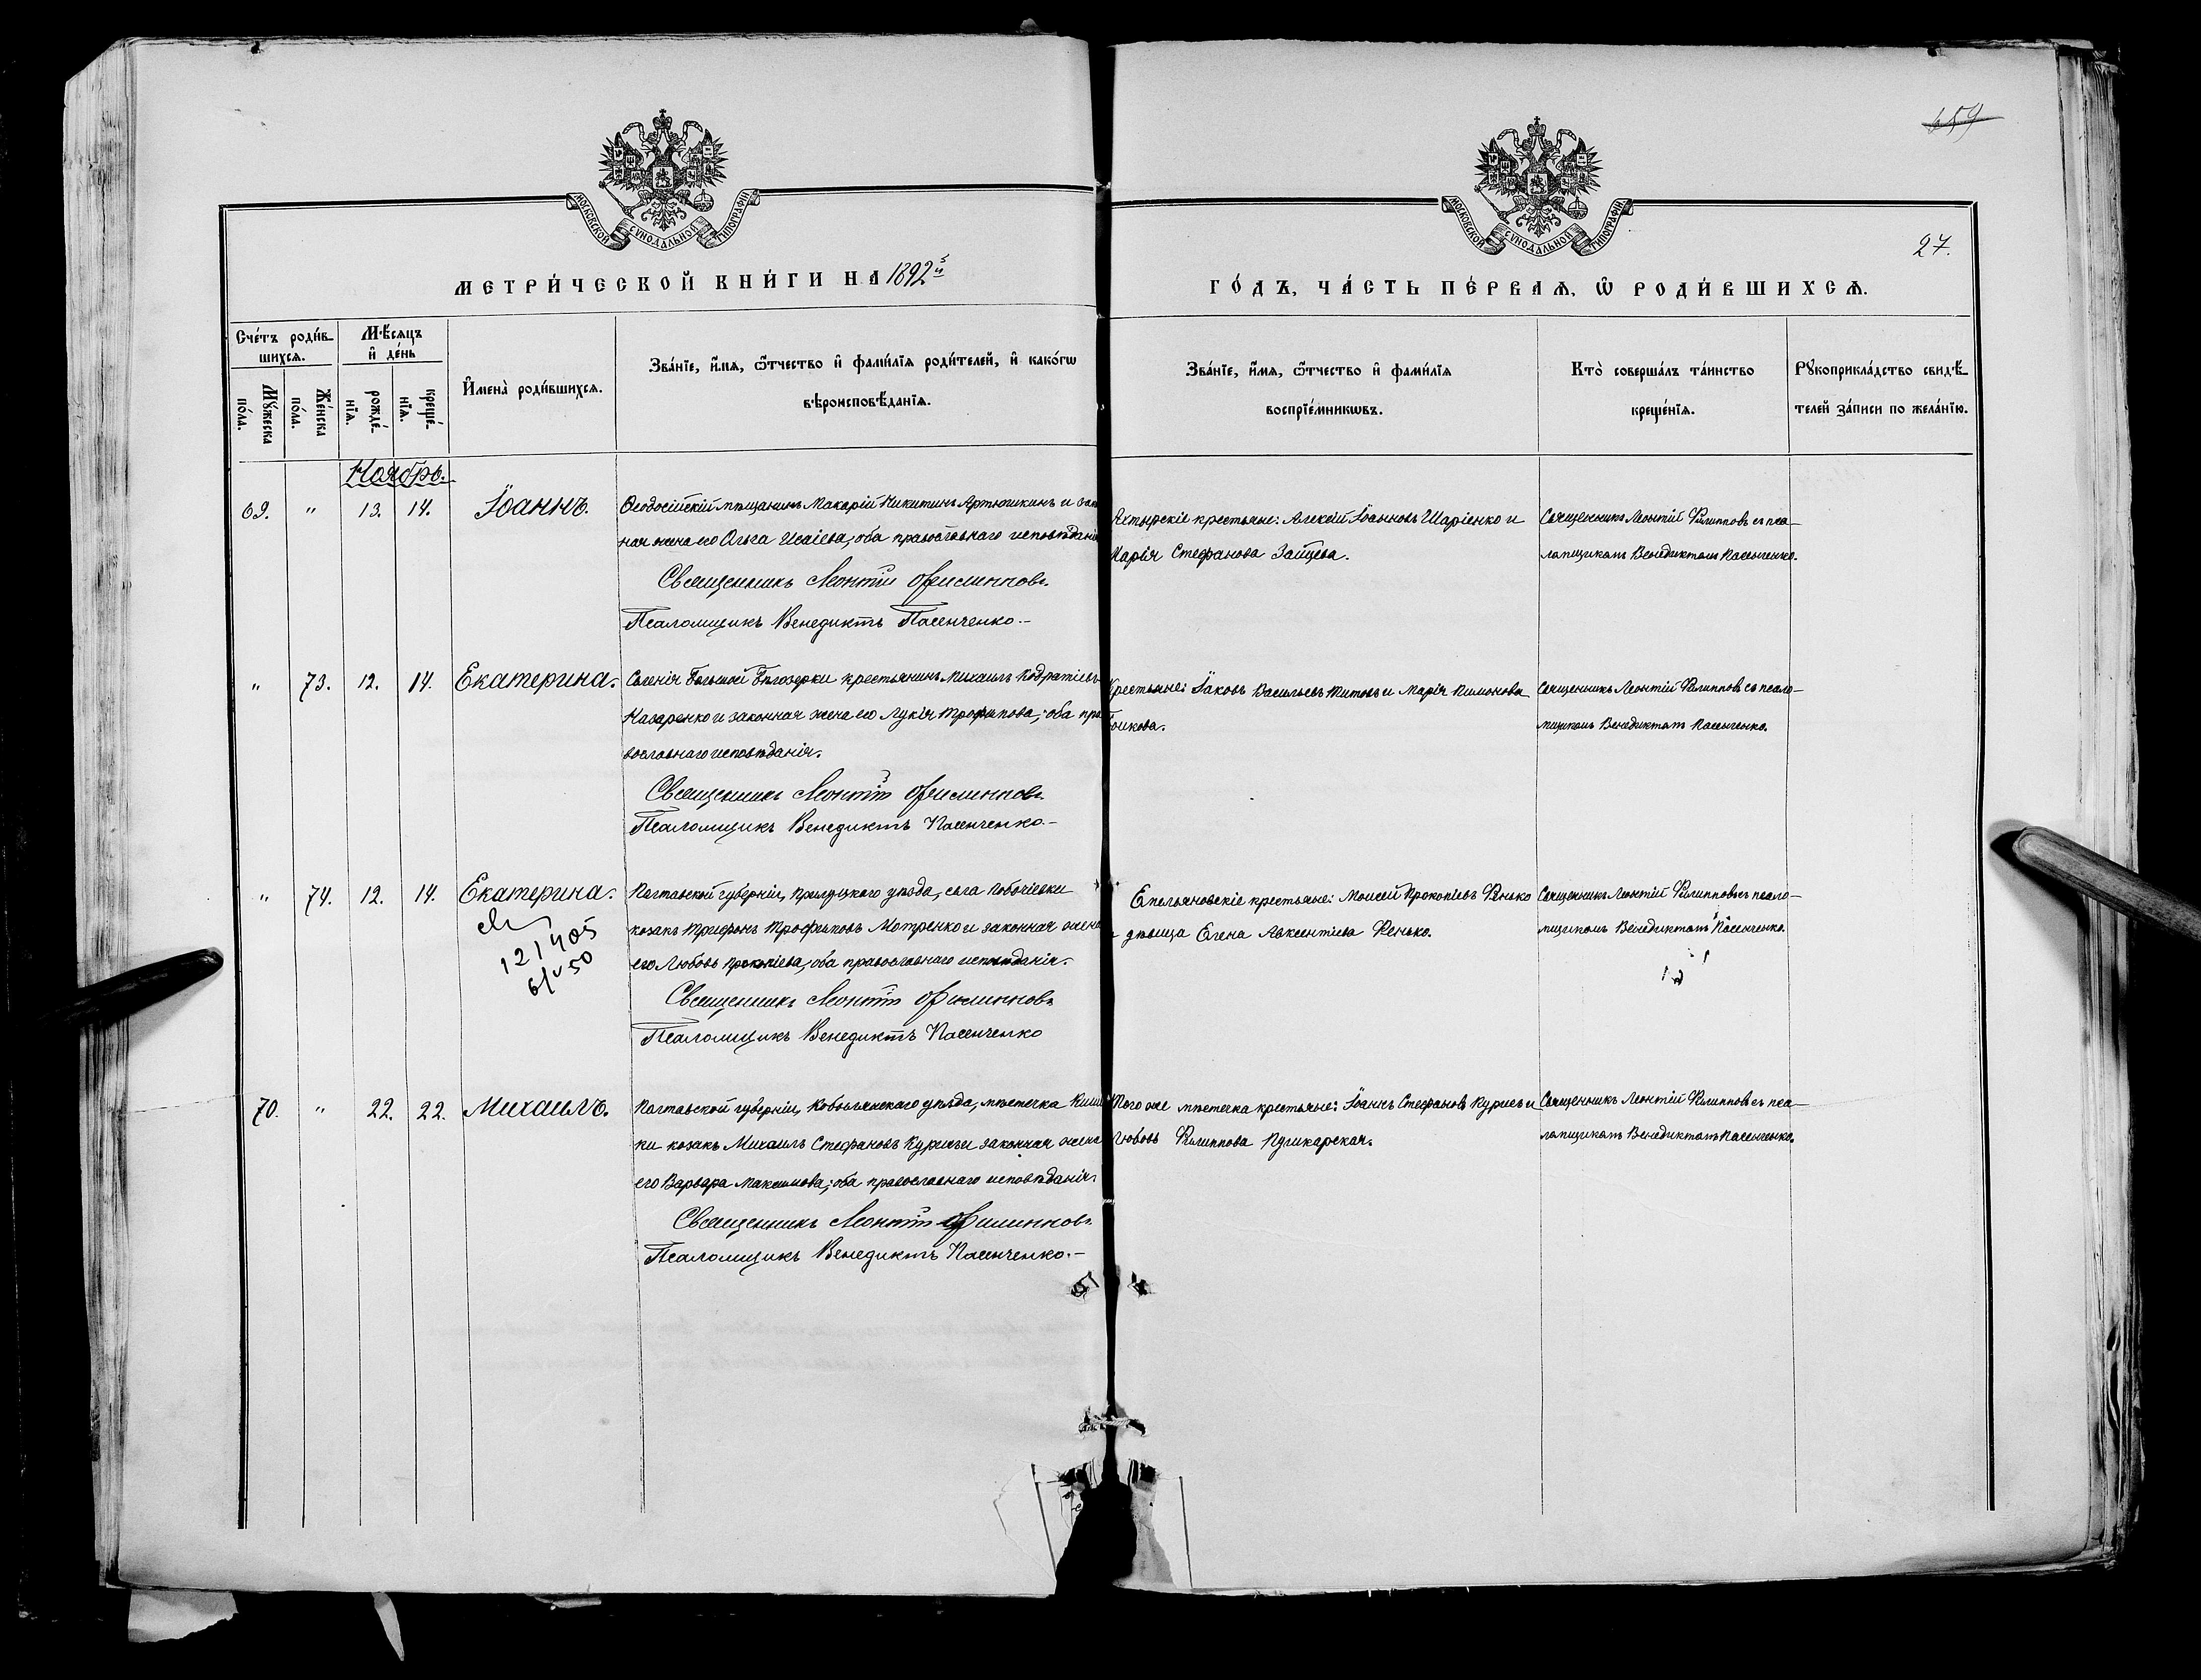 659
МОСКОВСКОЙ СѴНОДАЛЬНОЙ ТИПОГРАФІИ
МОСКОВСКОЙ СѴНОДАЛЬНОЙ ТИПОГРАФІИ
27.
МЕТРИ́ЧЕСКОЙ КНИ́ГИ НА 1892й
ГО́ДЪ, ЧА́СТЬ ПЕ́РВАѦ, Ѡ РОДИ́ВШИХСѦ.
Сче́тъ роди́в-
шихсѧ.
Мꙋжеска по́ла.
Же́нска по́ла.
Мѣ́сѧцъ
и де́нь
рожде́-
нїѧ.
креще́-
нїѧ.
Имена̀ роди́вшихсѧ.
Зва́нїе, и́мѧ, ѻ́тчество и фами́лїѧ роди́телей, и како́гѡ
вѣроисповѣ́данїѧ.
Зва́нїе, и́мѧ, ѻ́тчество и фами́лїѧ
воспрїе́мникѡвъ.
Кто̀ соверша́лъ та́инство
креще́нїѧ.
Рꙋкоприкла́дство свидѣ́-
телей за́писи по жела́нїю.
Ноябрь.
69. " 13. 14. Іоаннъ.
Ѳеодосійскій мѣщанинъ Макарій Никитинъ Артюшкинъ и зако
ная жена его Ольга Исаіева, оба православнаго исповѣданія
Священникъ Леонтій Филипповъ.
Псаломщикъ Венедиктъ Пасенченко.-
Ахтырскіе крестьяне: Алексій Іоанновъ Шаріенко и
Марія Стефанова Зайцева.
Священникъ Леонтій Филипповъ съ пса-
ломщикомъ Венедиктомъ Пасенченко.
" 73. 12. 14. Екатерина.
Селенія Большой Бѣлозерки крестьянинъ Михаилъ Кодратіевъ
Назаренко и законная жена его Лукія Трофимова, оба пра
вославнаго исповѣданія.
Священникъ Леонтій Филипповъ.
Псаломщикъ Венедиктъ Пасенченко.-
Крестьяне: Іаковъ Васильевъ Титовъ и Марія Пимонова
Бойкова.
Священникъ Леонтій Филипповъ съ псало-
мщикомъ Венедиктомъ Пасенченко.
" 74. 12. 14. Екатерина.
121405
6/V 50
Полтавской губерніи, Прилуцкаго уѣзда, села
козакъ Трифонъ Трофимовъ Мотренко и законная жена
его Любовь Прокопіева, оба православнаго исповѣданія.
Священникъ Леонтій Филипповъ
Псаломщикъ Венедиктъ Пасенченко
Емельяновскіе крестьяне: Моисей Прокопіевъ Фенько
дѣвица Елена Авксентіева Фенько.
Священникъ Леонтій Филипповъ съ псало-
мщикомъ Венедиктомъ Пасенченко.
70. " 22. 22. Михаилъ.
Полтавской губерніи, Кобелякскаго уѣзда, мѣстечка Киши
ки козакъ Михаилъ Стефановъ и законная жена
его Варвара Максимова, оба православнаго исповѣданія.
Священникъ Леонтій Филипповъ.
Псаломщикъ Венедиктъ Пасенченко.-
Того же мѣстечка крестьяне: Іоаннъ Стефановъ и
Любовь Филиппова Пушкарская.
Священникъ Леонтій Филипповъ съ пса-
ломщикомъ Венедиктомъ Пасенченко.